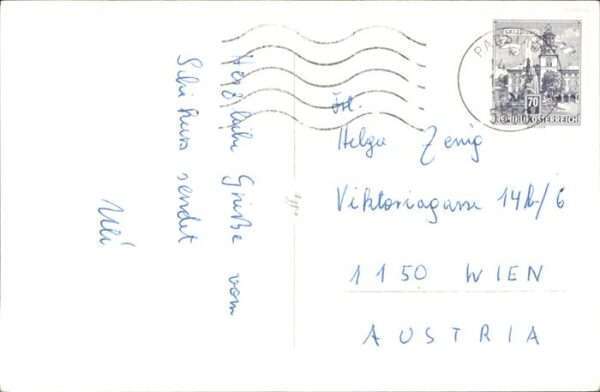 Herzliche Grüße vom
Schikurs sendet
Uli
Helga Zenig
Viktoriagasse 14b/6
1150 WIEN
AUSTRIA
70
REPUBLIK ÖSTERREICH